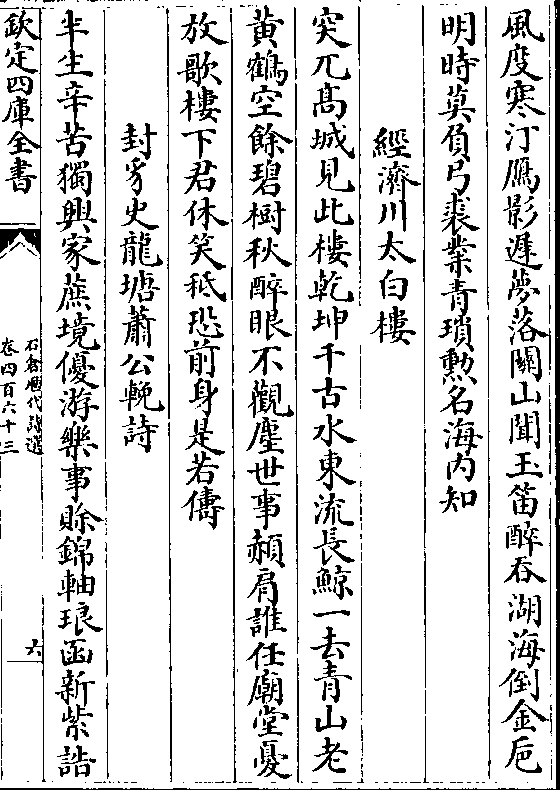 風度寒汀鴈影遲夢落關山聞玉笛醉吞湖海倒金巵
明時莫負弓裘業青瑣勲名海内知
經濟川太白樓
突兀髙城見此樓乾坤千古水東流長鯨一去青山老
黄鶴空餘碧樹秋醉眼不觀塵世事頳肩誰任廟堂憂
放歌樓下君休笑秪恐前身是若儔
封豸史龍塘蕭公輓詩
半生辛苦獨興家蔗境優游樂事賒錦軸琅函新紫誥
欽定四庫全書
石倉歷代詩選
卷四百六十三
六